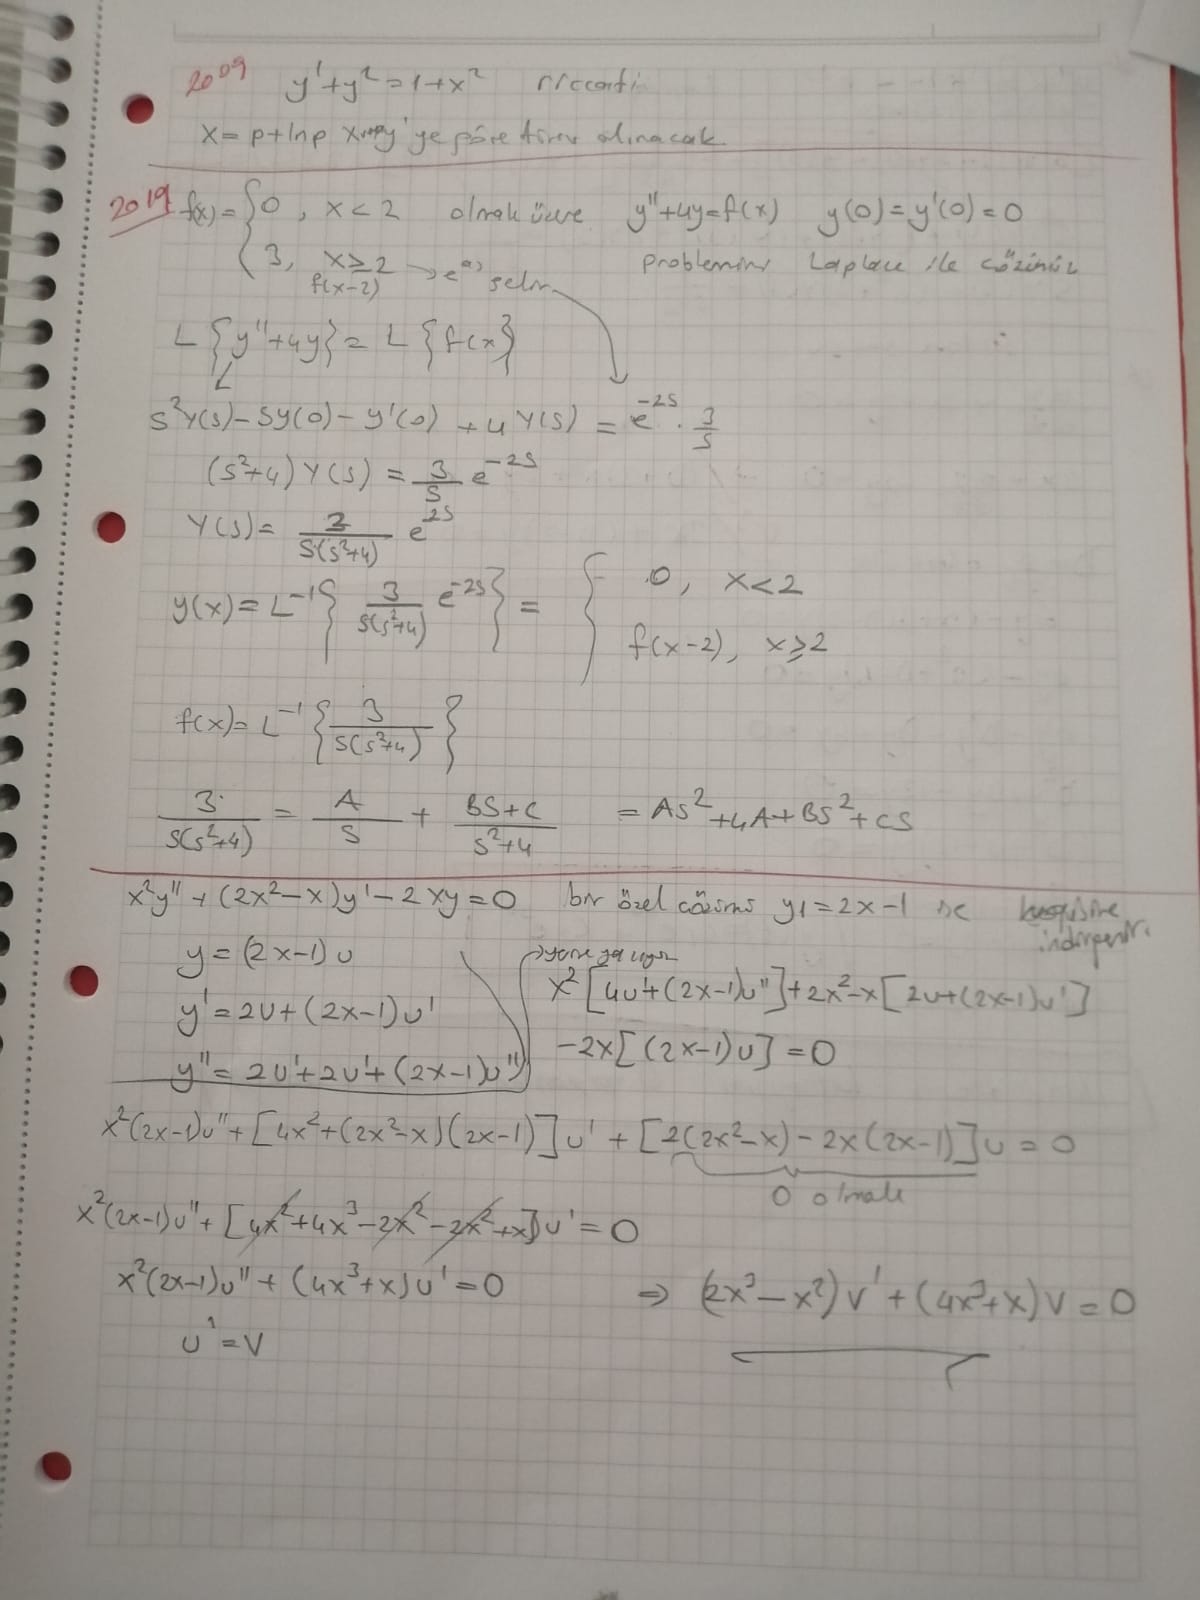 2009 y' + y² = 1 + x² riccati
x = p + lnp y'ye göre türev alınacak
2019 f(x) = { 0 , x < 2 olmak üzere y'' + 4y = f(x) y(0) = y'(0) = 0
3, x ≥ 2 problemini Laplace ile çözünüz
f(x-2)
L { y'' + 4y } = L { f(x) }
s²Y(s) - sy(0) - y'(0) + 4Y(s) = e^-2s . 3/s
(s²+4) Y(s) = 3/s e^-2s
Y(s) = 3/s(s²+4) e^-2s
y(x) = L^-1 { 3/s(s²+4) e^-2s } = { 0, x < 2
f(x-2), x ≥ 2
f(x) = L^-1 { 3/s(s²+4) }
3/s(s²+4) = A/s + Bs+C/s²+4 = As² + 4A + Bs² + Cs
x²y'' + (2x²-x)y' - 2xy = 0 bir özel çözümü y1 = 2x-1 ise
y = (2x-1)u
y' = 2u + (2x-1)u'
y'' = 2u' + 2u' + (2x-1)u''
x² [4u' + (2x-1)u''] + 2x²-x [2u + (2x-1)u']
-2x [(2x-1)u] = 0
x²(2x-1)u'' + [4x² + (2x²-x)(2x-1)] u' + [2(2x²-x) - 2x(2x-1)] u = 0
0 olmalı
x²(2x-1)u'' + [4x² + 4x³ - 2x² - 2x² + x] u' = 0
x²(2x-1)u'' + (4x³+x)u' = 0 ⇒ (2x³-x²)v' + (4x³+x)v = 0
u' = v